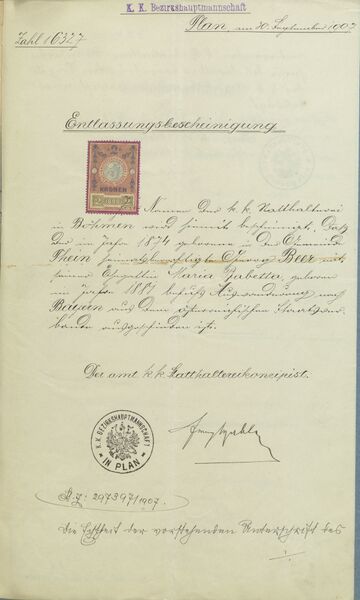 K. K. Bezirkshauptmannschaft
Plan, am 20. September 1907
Zahl 16327
Entlassungsbescheinigung
KRONEN
Namen der k. k. Statthalterei
in Böhmen wird hiemit bescheinigt, daß
der im Jahre 1874 geborene in der Gemeinde
heimatberechtigte Beer mit
seiner Ehegattin Maria Babetta, geboren
im Jahre 1881 behufs Auswanderung nach
Bayern aus dem österreichischen Staatsver-
bande ausgeschieden ist.
Der amt. k. k. Statthaltereikonzipist.
K. K. BEZIRKSHAUPTMANNSCHAFT
IN PLAN
297397/1907.
Die Echtheit der vorstehenden Unterschrift des